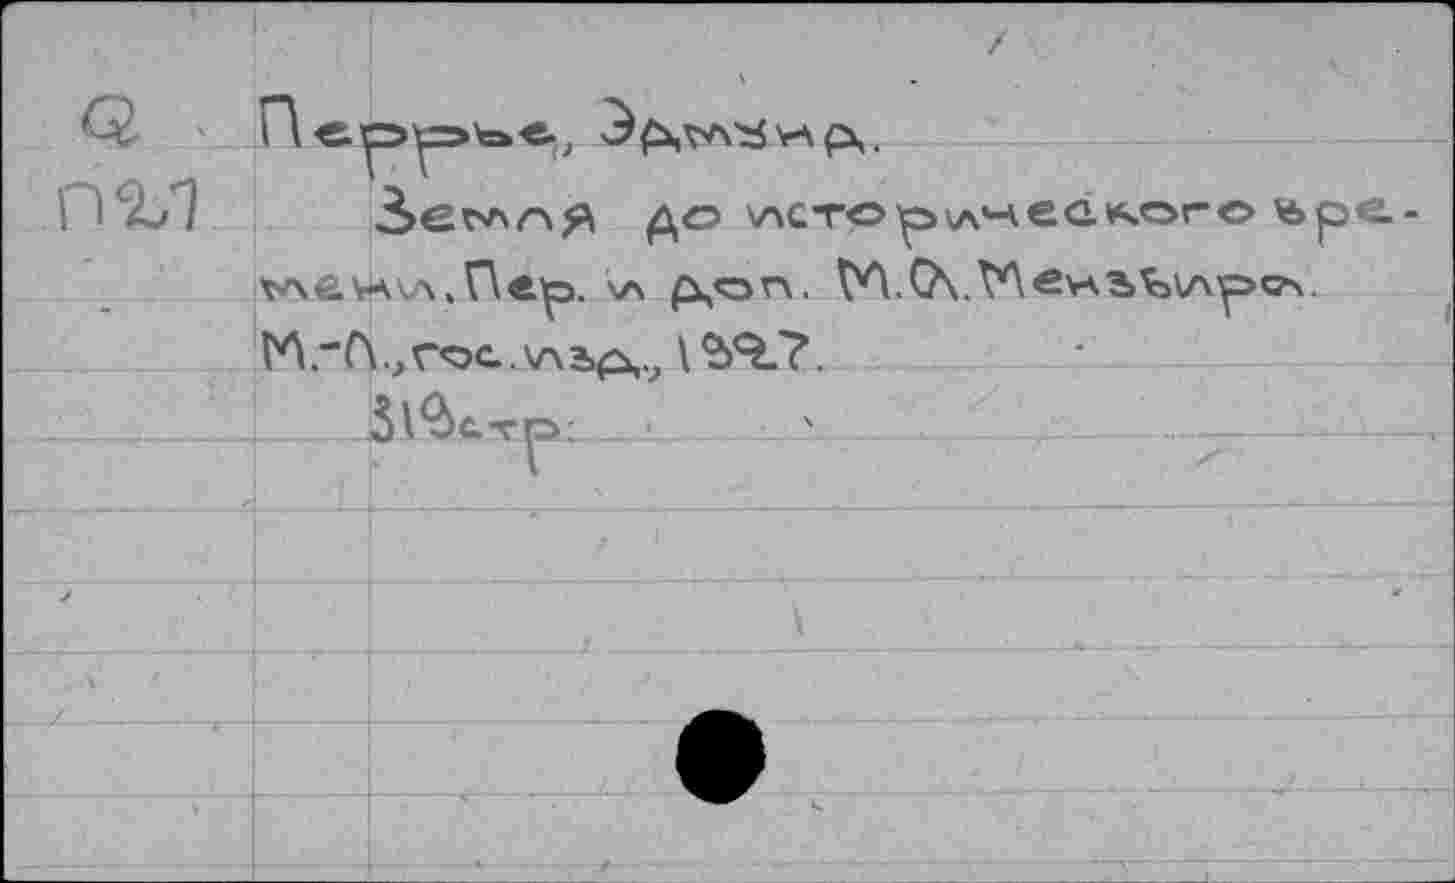 Q
П27
Перрье, Эдмонд.
Земля до исторического вре-
мени. Пер. и доп. М.А. Мензбира.
М.-Л., гос. изд., 1927.
318стр.